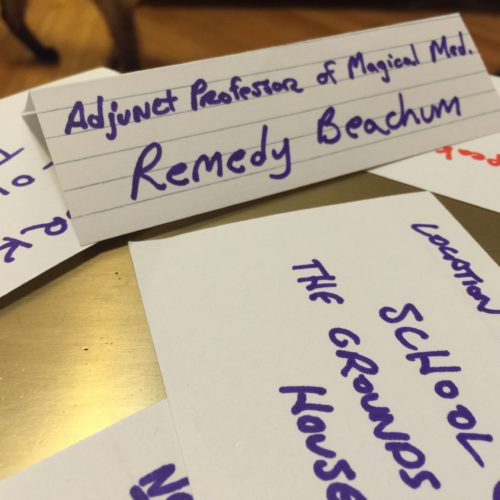 Adjunct Professor of Magical Med.
Remedy Beachum
LOCATION
SCHOOL
THE GROUNDS
HOUSE